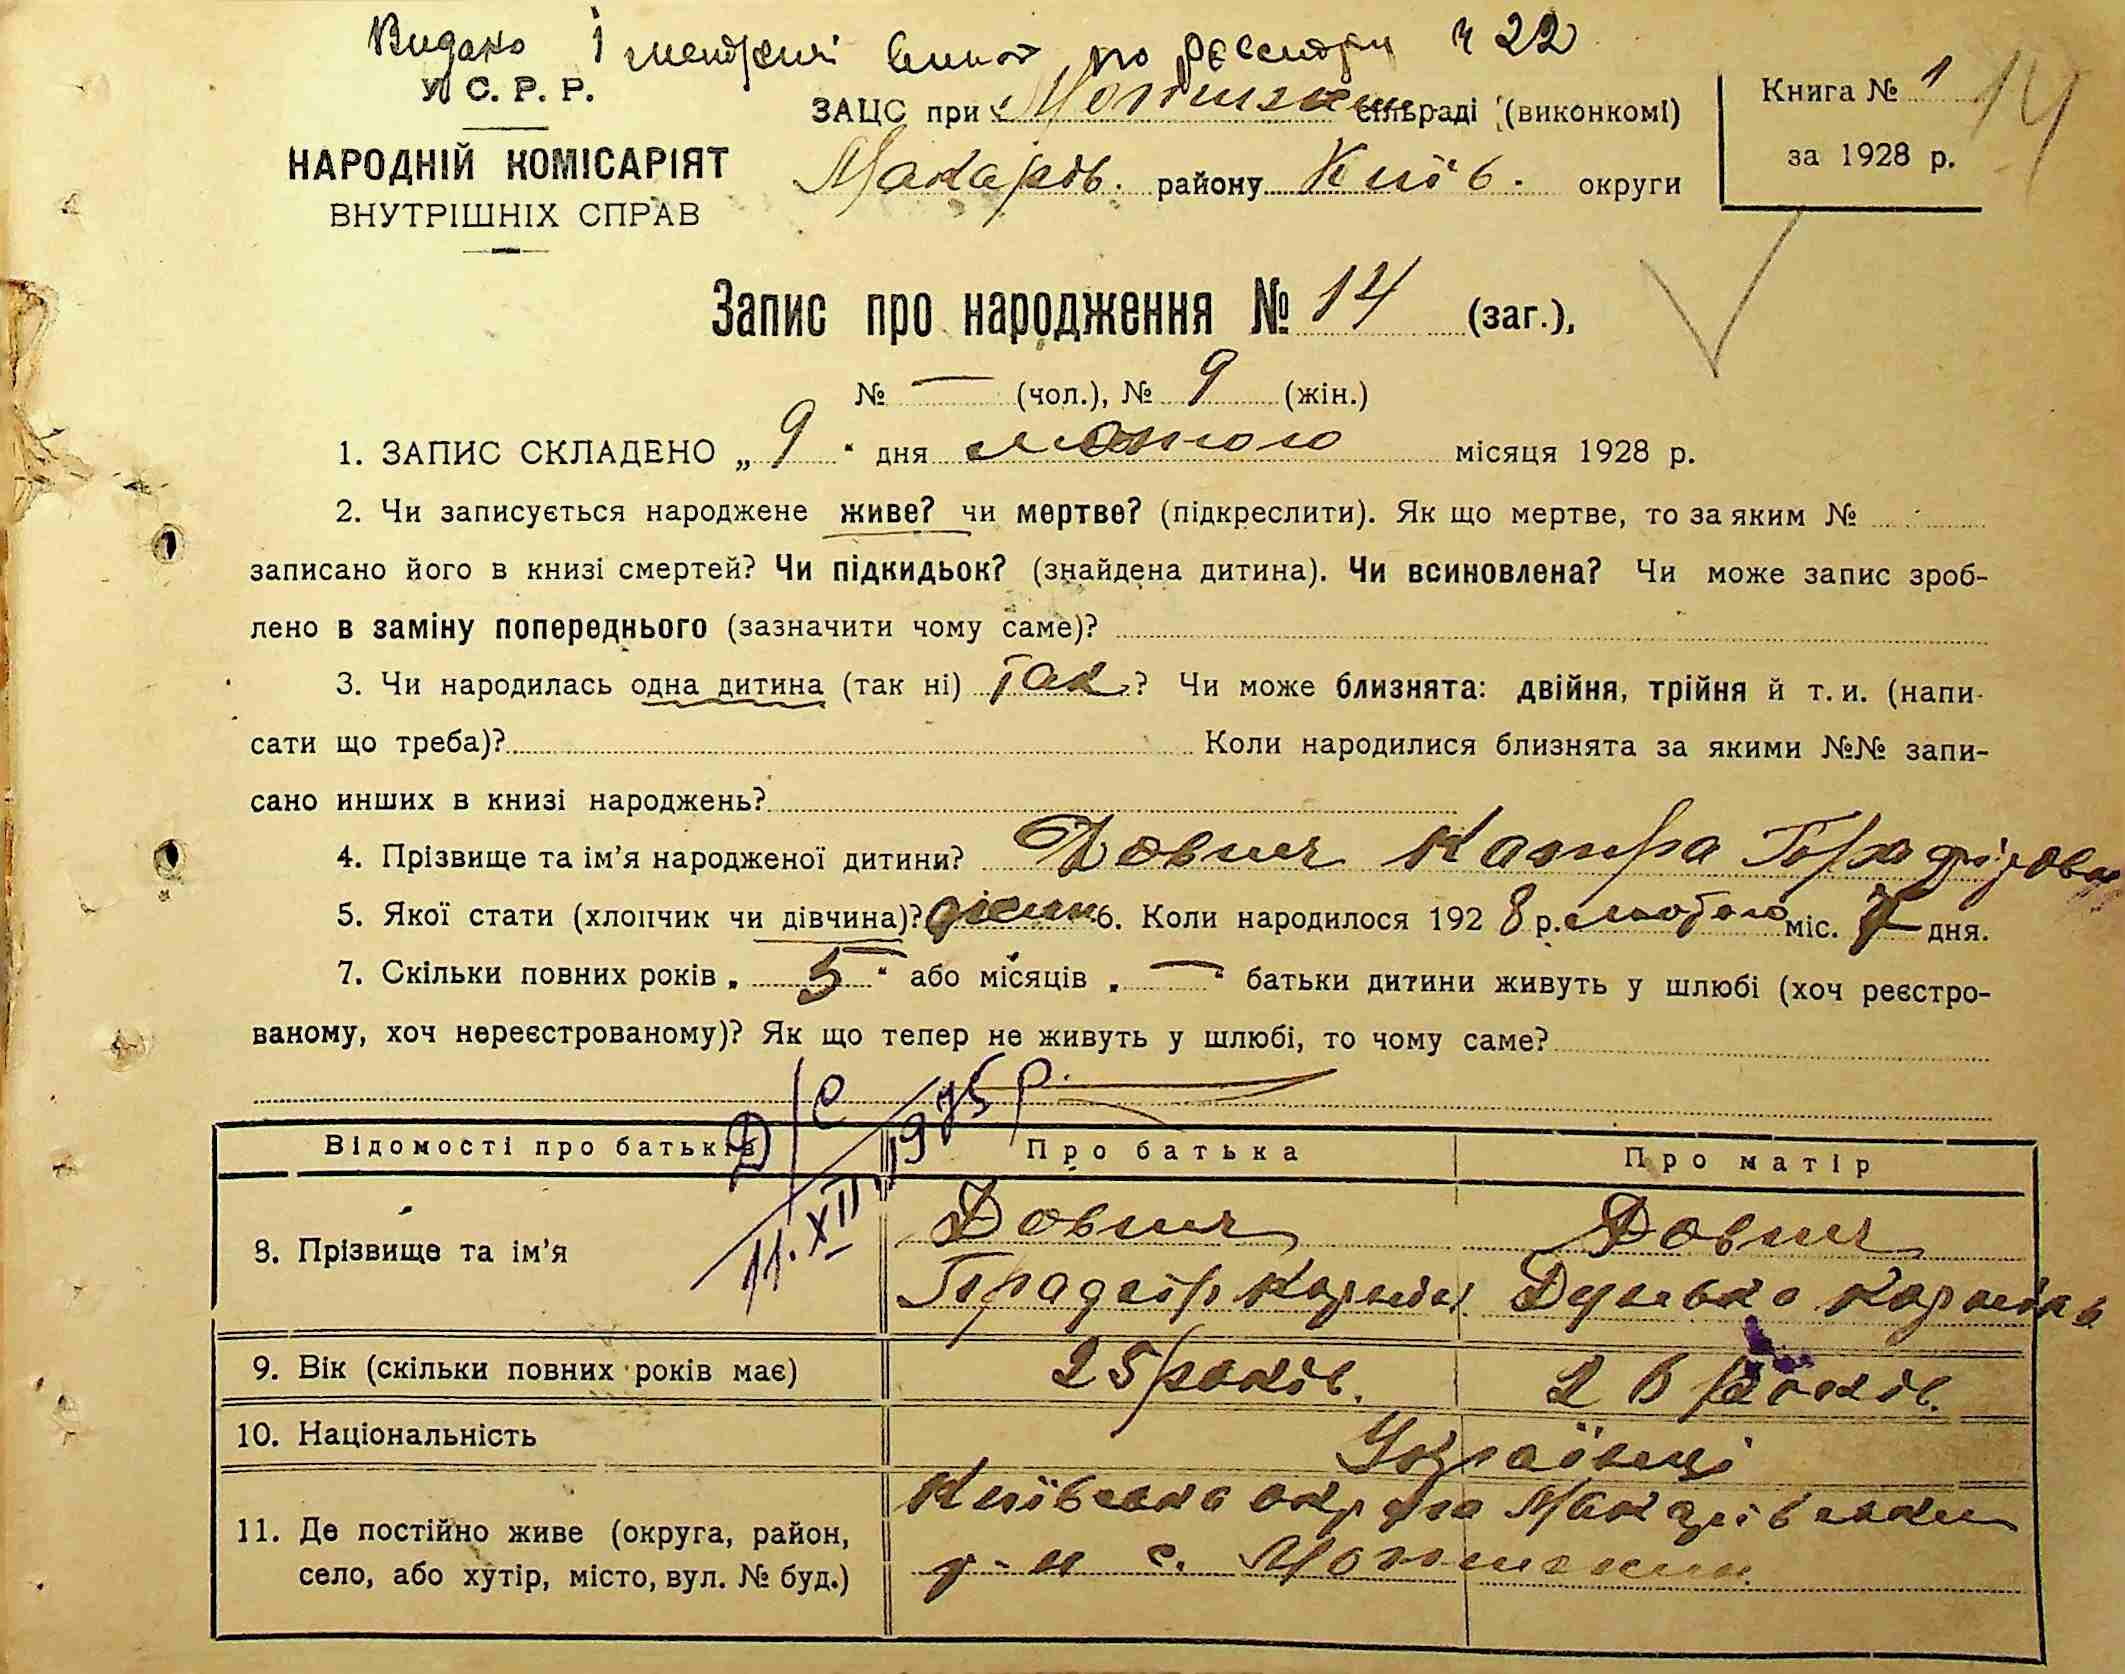 Видано і метричні виписи по реєстру ч 22
У. С. Р. Р.
НАРОДНІЙ КОМІСАРІЯТ
ВНУТРІШНІХ СПРАВ
ЗАЦС при сільраді (виконкомі)
Макарів. району Київ. округи
Книга № 1
за 1928 р.
14
Запис про народження № 14 (заг.),
№ — (чол.), № 9 (жін.)
1. ЗАПИС СКЛАДЕНО „ 9 “ дня лютого місяця 1928 р.
2. Чи записується народжене живе? чи мертве? (підкреслити). Як що мертве, то за яким №
записано його в книзі смертей? Чи підкидьок? (знайдена дитина). Чи всиновлена? Чи може запис зроб-
лено в заміну попереднього (зазначити чому саме)?
3. Чи народилась одна дитина (так ні) так? Чи може близнята: двійня, трійня й т. и. (напи-
сати що треба)? Коли народилися близнята за якими №№ запи-
сано инших в книзі народжень?
4. Прізвище та ім’я народженої дитини? Довгич
5. Якої стати (хлопчик чи дівчина)? Коли народилося 1928 р. лютого міс. 7 дня.
7. Скільки повних років „ 5 “ або місяців „ — “ батьки дитини живуть у шлюбі (хоч реєстро-
ваному, хоч нереєстрованому)? Як що тепер не живуть у шлюбі, то чому саме?
Д/с 11.XII.1975 р.
Відомості про батьків Про батька Про матір
8. Прізвище та ім’я Довгич Довгич
9. Вік (скільки повних років має) 25 років. 26 років.
10. Національність Українці
11. Де постійно живе (округа, район, Київська округа Макарівський
село, або хутір, місто, вул. № буд.) р-н с.